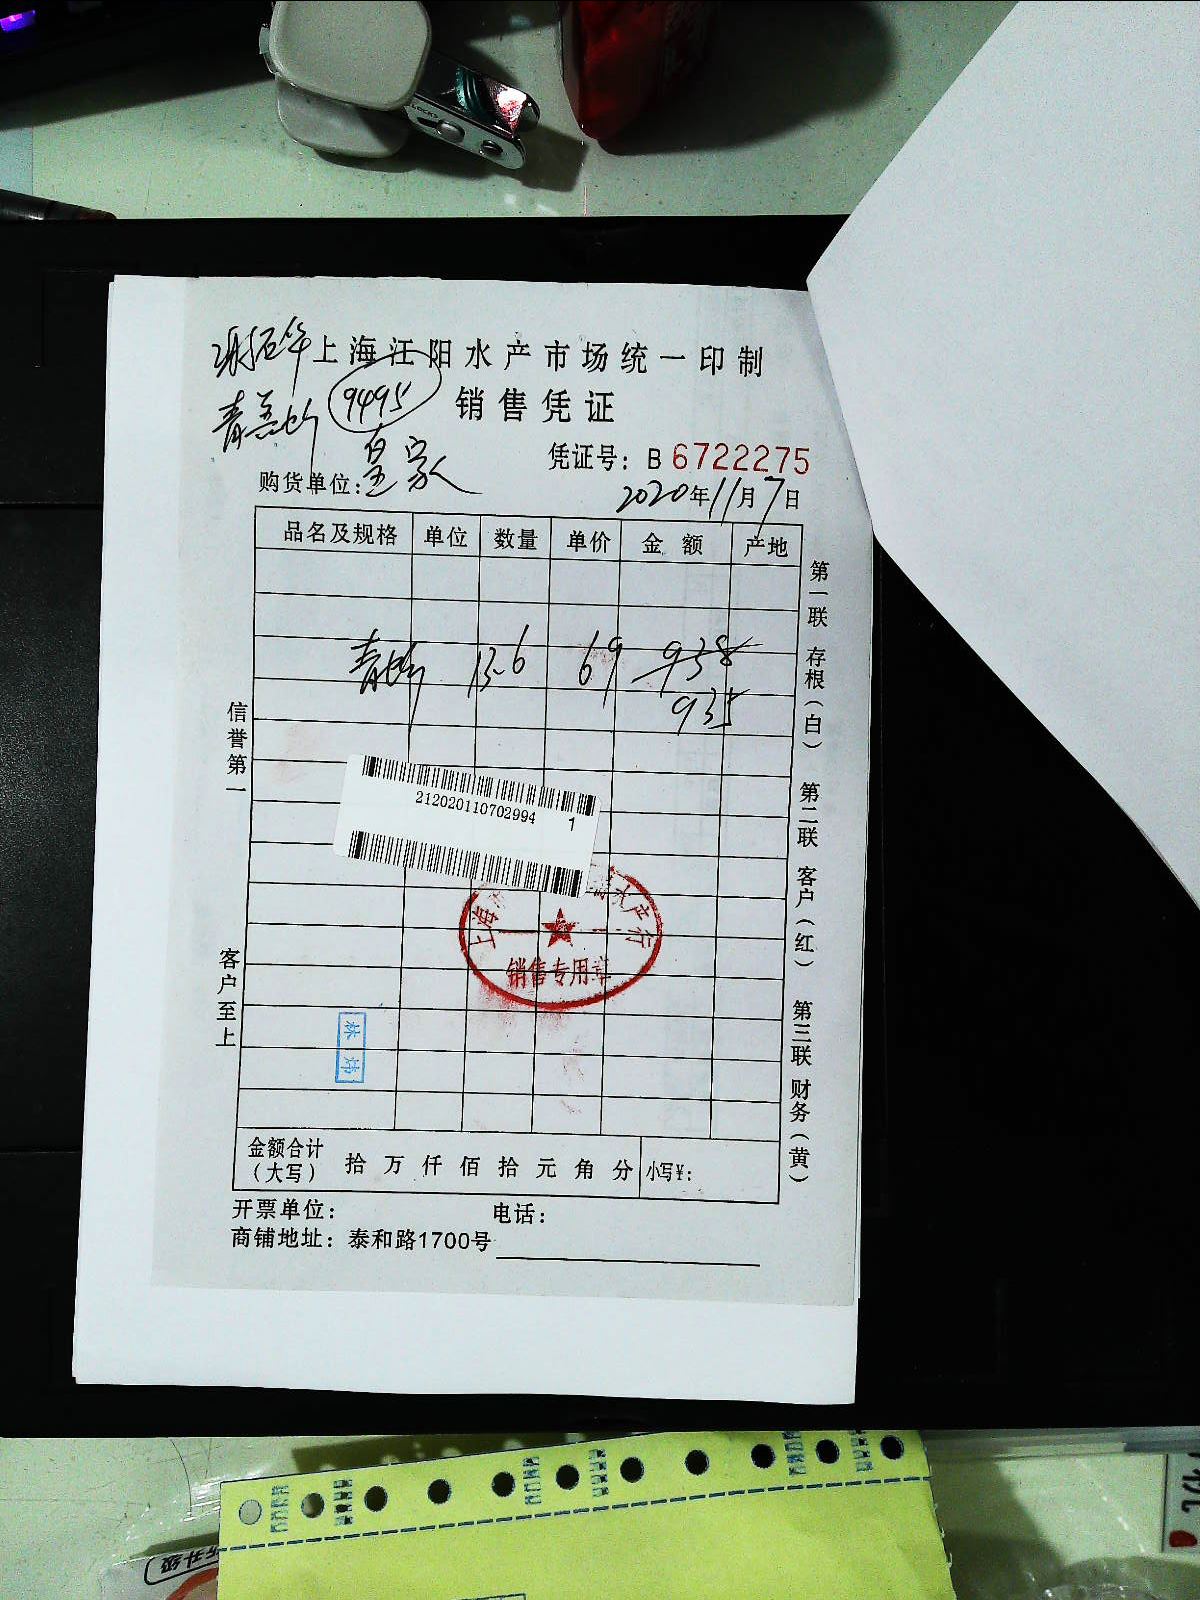 上海江阳水产市场统一印制
9495 销售凭证
凭证号：B 6722275
购货单位：皇家
2020年11月7日
品名及规格 单位 数量 单价 金额 产地
13.6 69 938
935
212020110702994 1
上海 水产行
销售专用章
林
金额合计（大写） 拾 万 仟 佰 拾 元 角 分 小写￥：
开票单位： 电话：
商铺地址：泰和路1700号
信誉第一
客户至上
第一联 存根（白） 第二联 客户（红） 第三联 财务（黄）
升级